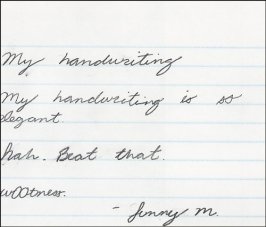 My handwriting
My handwriting is so
elegant.
hah. Beat that.
w00tness.
- Jenny M.